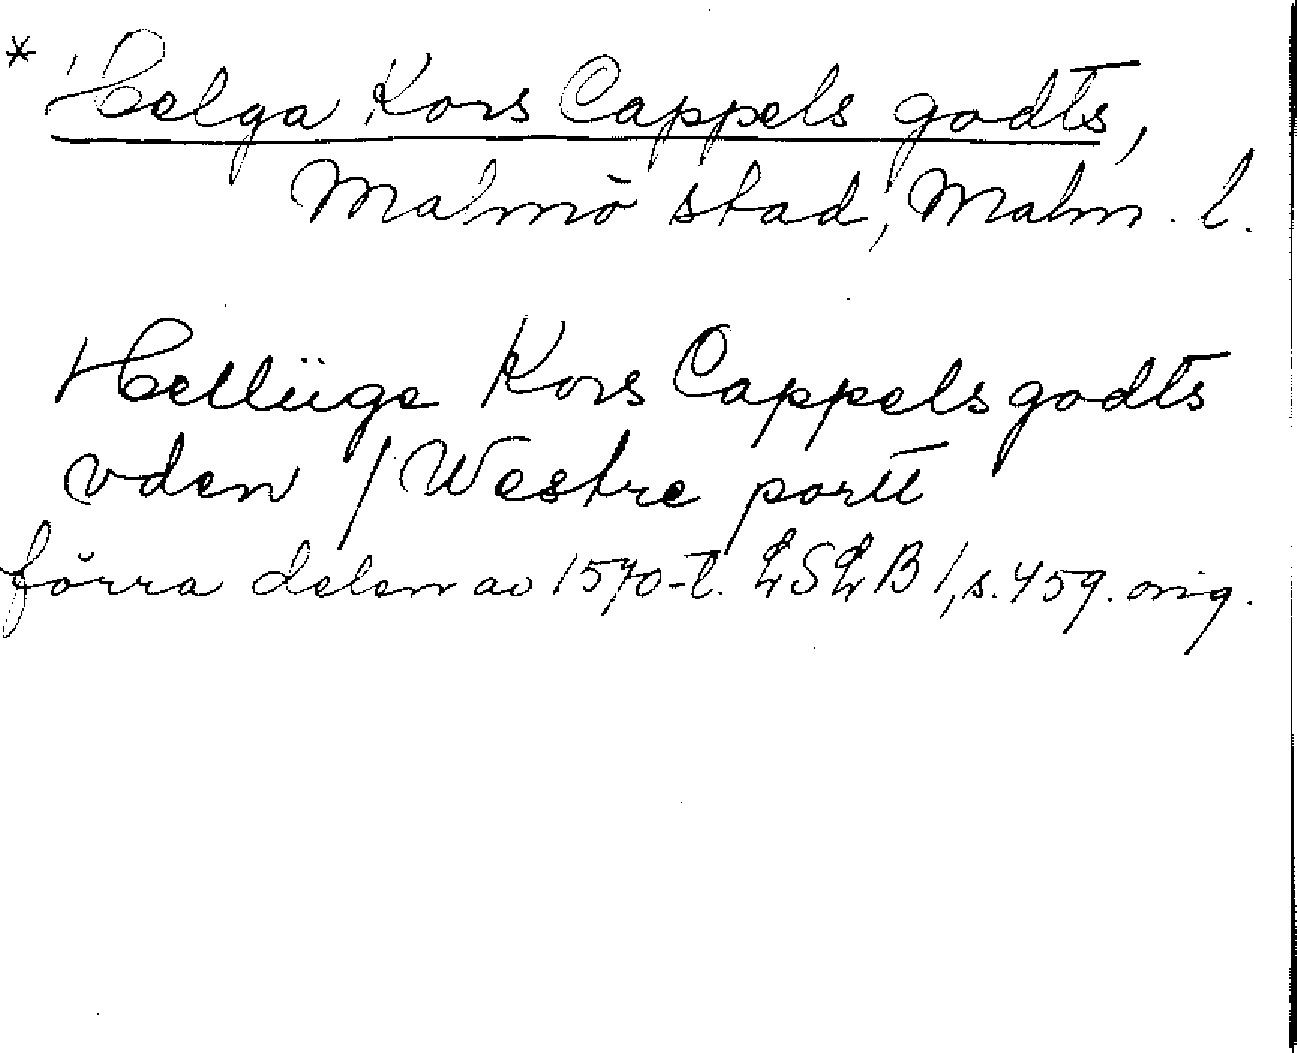 * Helga Kors Cappels godts,
Malmö stad, Malm. l.
Hellüge Kors Cappels godts
vden / Westre portt
förra delen av 1570-t. LSLB 1, s. 459. orig.